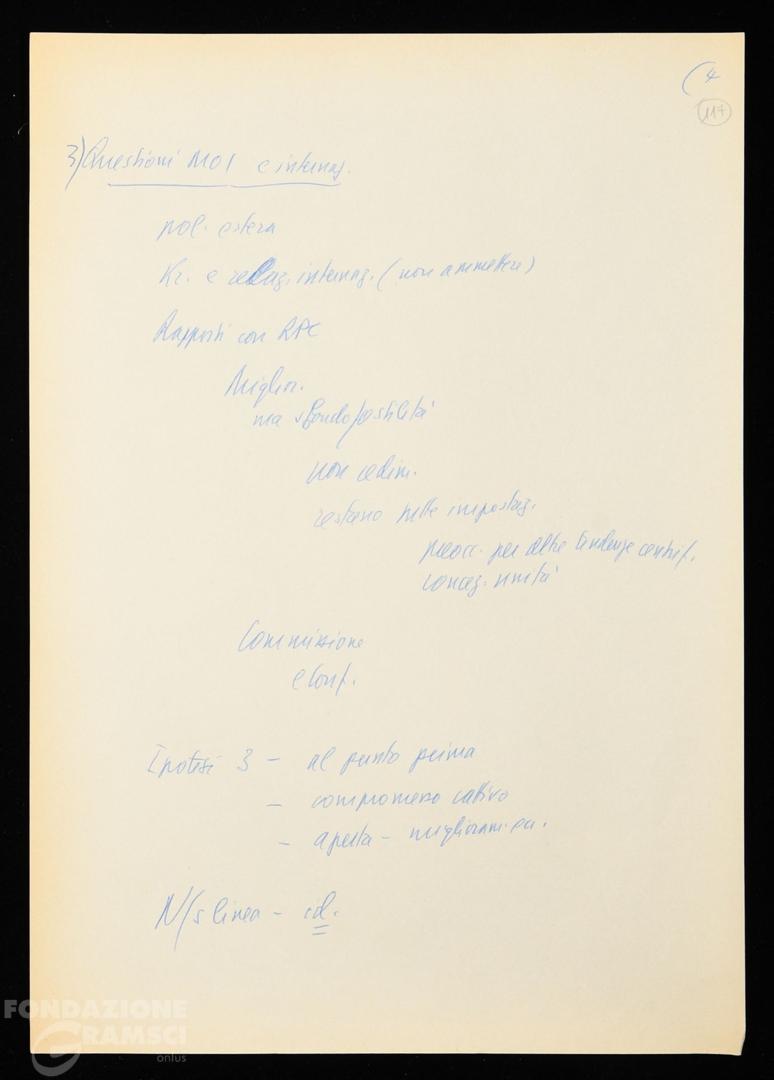 (4
117
3) Questioni MOI e internaz.
pol. estera
Kr. e relaz. internaz. (non ammettere)
Rapporti con RPC
Miglior.
ma sfondo possibilità
non cedim.
restano nelle impostaz.
preocc. per altre tendenze centrif.
concez. unità
Commissione
e Conf.
Ipotesi 3 - al punto prima
- compromesso cattivo
- aperta - miglioram.
N/s linea - id.
FONDAZIONE
GRAMSCI
onlus